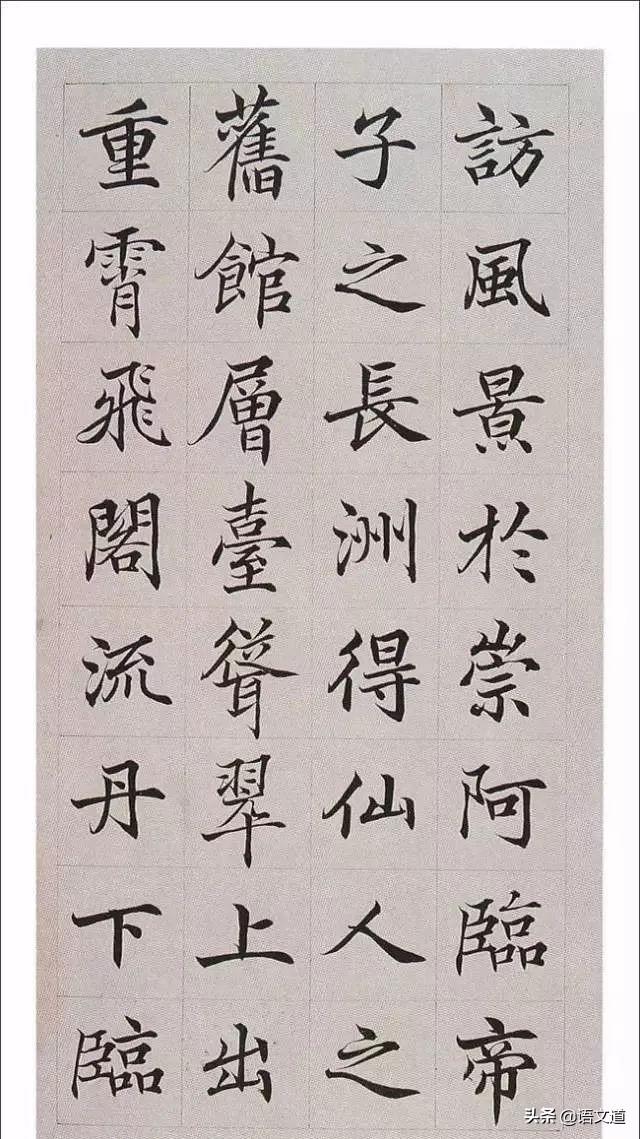 訪風景於崇阿臨帝
子之長洲得仙人之
舊館層臺聳翠上出
重霄飛閣流丹下臨
头条 @语文道